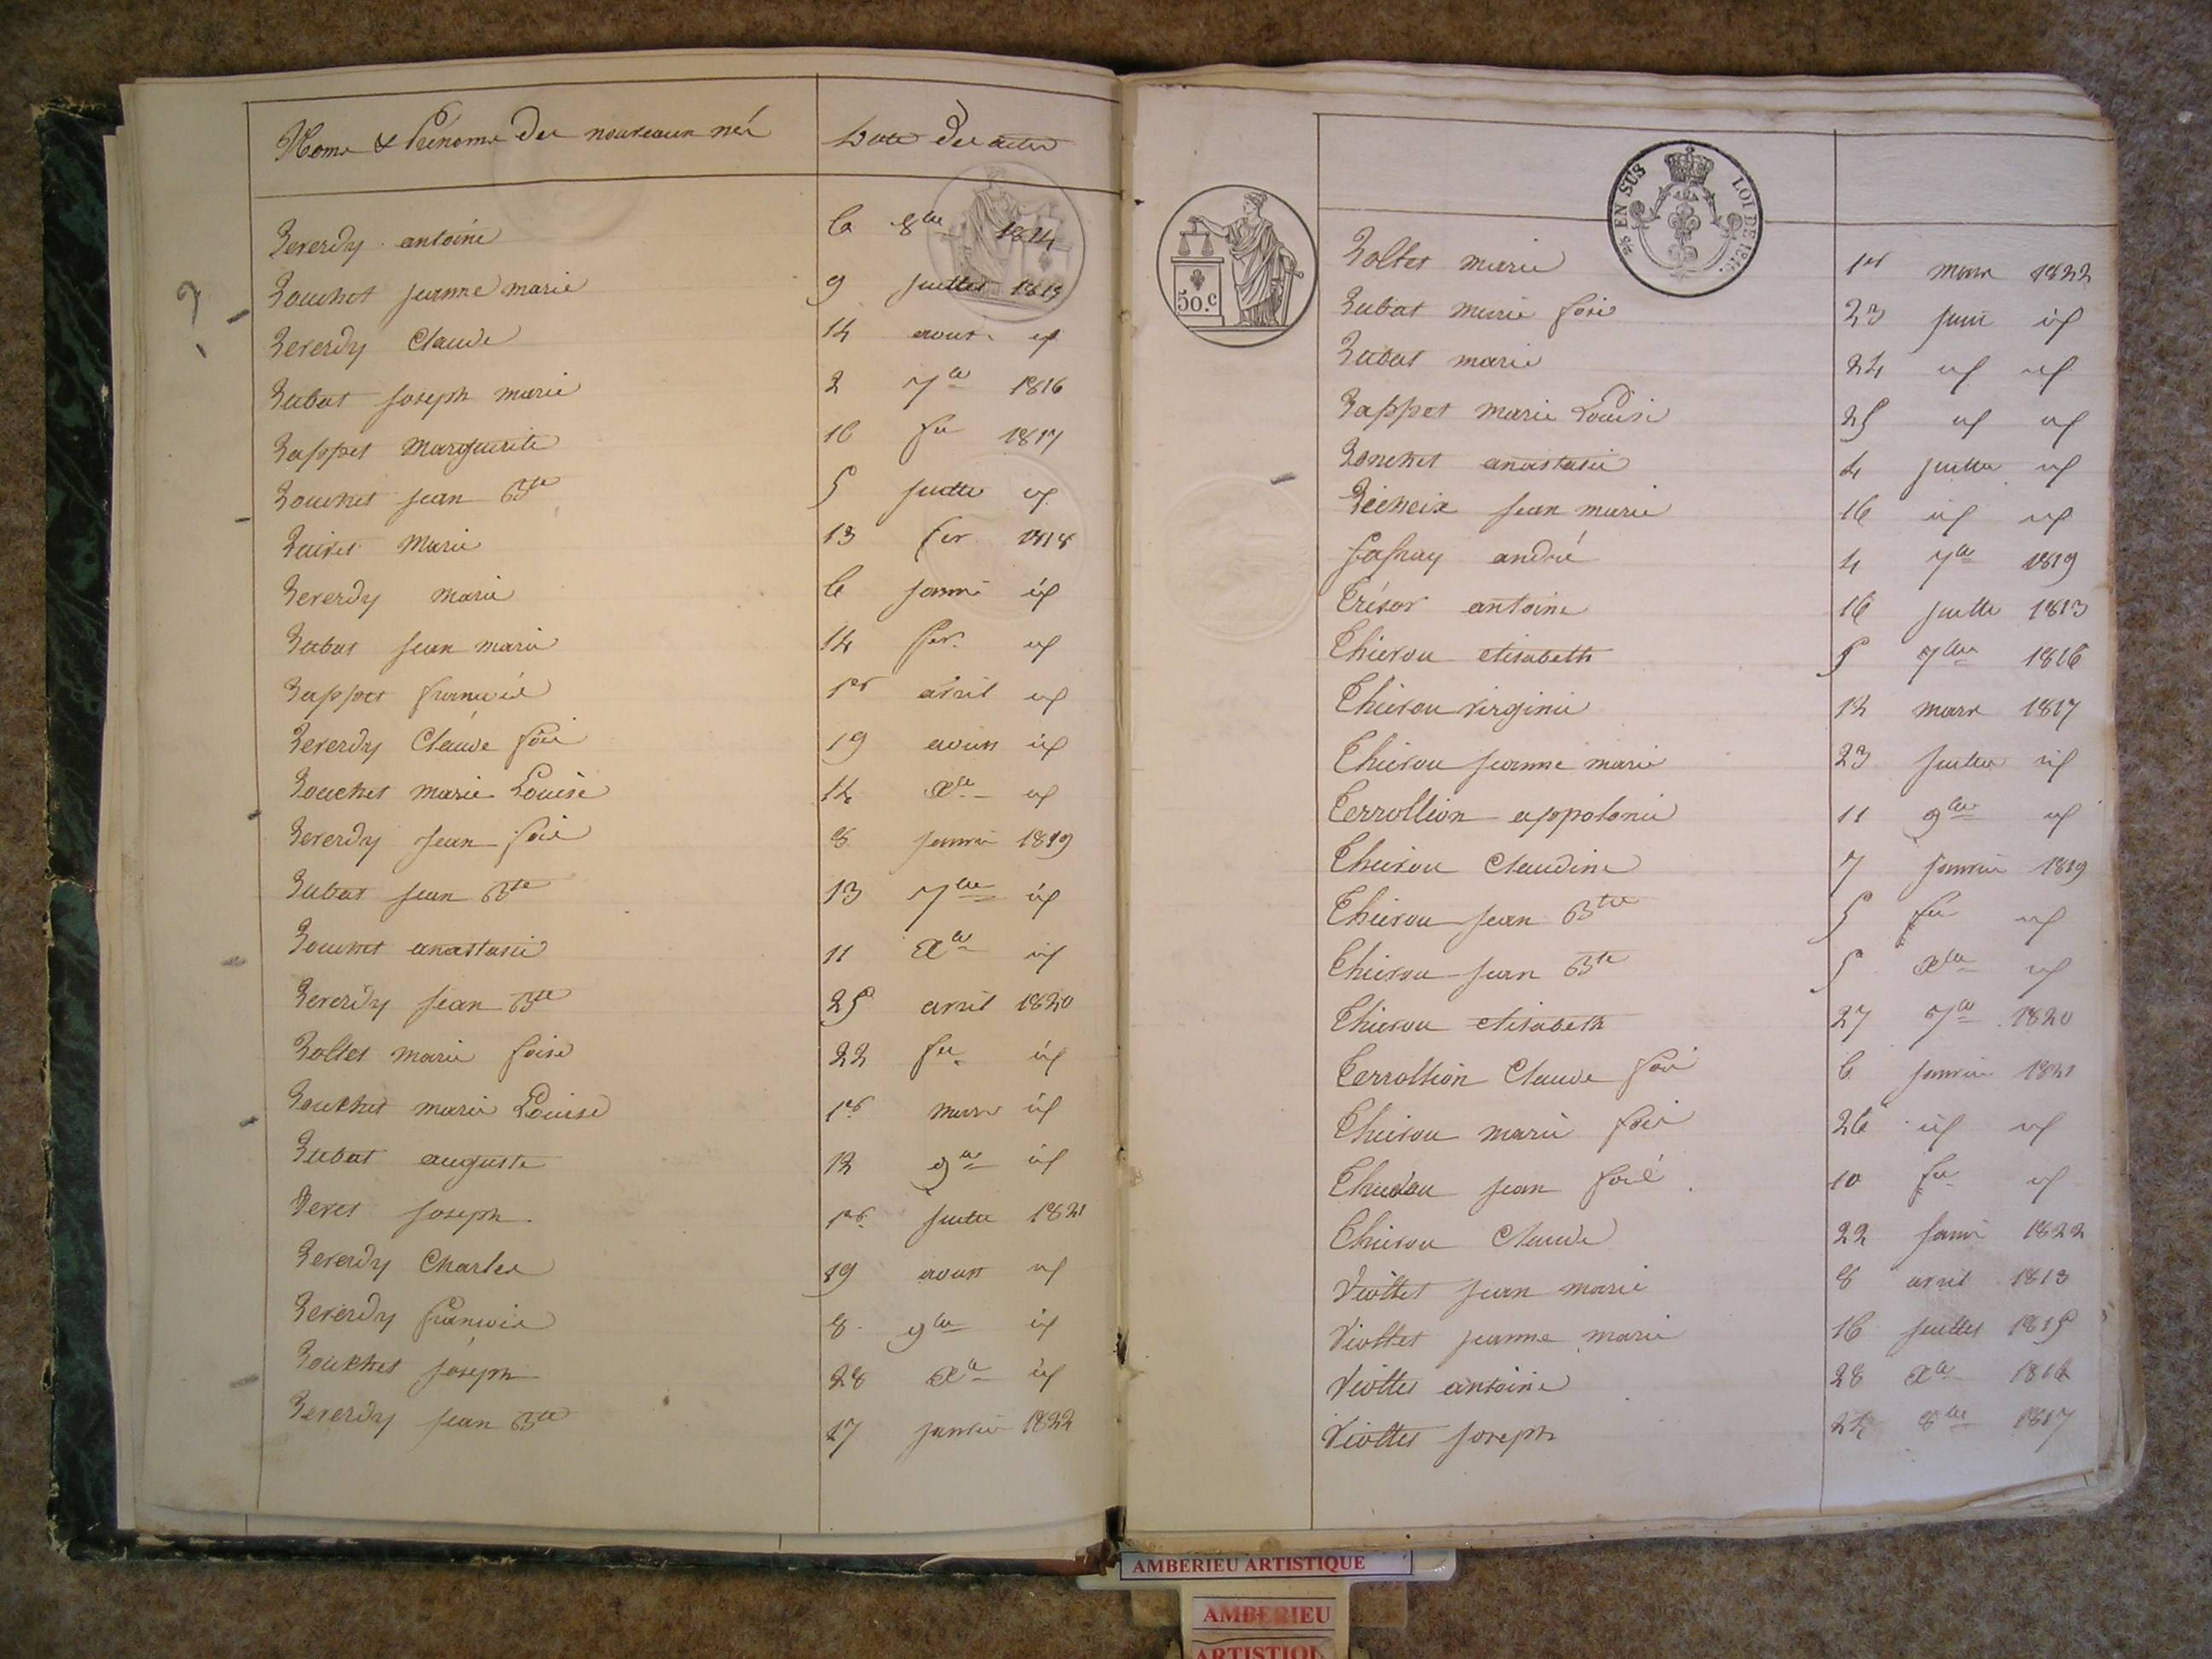 Noms & Prénoms des nouveaux nés
Date des actes
Reverdy antoine 6 8bre 1814
Rouchet jeanne marie 9 juillet 1815
Reverdy Claude 14 aout id
Rubat joseph marie 2 7bre 1816
Rappet Marguerite 16 fer 1817
Rouchet jean Bte 5 juillet id
Marie 13 fer 1818
Reverdy marie 6 janvi id
Rubat jean marie 14 fer id
Rappet francois 1er avril id
Reverdy Claude fois 19 aout id
Rouchet marie Louise 14 Xbre id
Reverdy jean fois 8 janvier 1819
Rubat jean Bte 13 7bre id
Rouchet anastasie 11 Xbre id
Reverdy jean Bte 25 avril 1820
Rollet marie foise 22 fer id
Rouchet marie Louise 1er mars id
Rubat auguste 12 9bre id
joseph 1er juillet 1821
Reverdy Charles 19 aout id
Reverdy francois 8 9bre id
Rouchet joseph 28 Xbre id
Reverdy jean Bte 17 janvier 1822
EN SUS
LOI DE 1816
50.c
Rollet marie 1er mars 1822
Rubat marie foise 23 juin id
Rubat marie 24 id id
Rappet marie Louise 25 id id
Rouchet anastasie 4 juillet id
jean marie 16 id id
andré 4 7bre 1819
Trésor antoine 16 juillet 1813
Thiesou elisabeth 5 7bre 1816
Thiesou virginie 12 mars 1817
Thiesou jeanne marie 23 juillet id
Terrollion appolonie 11 9bre id
Thiesou Claudine 7 janvier 1819
Thiesou jean Bte 5 fer id
Thiesou jean Bte 5 Xbre id
Thiesou elisabeth 27 7bre 1820
Terrollion Claude fois 6 janvier 1821
Thiesou marie foise 26 id id
Thiesou jean fois 10 fer id
Thiesou Claude 22 janvi 1822
Viollet jean marie 8 avril 1813
Viollet jeanne marie 16 juillet 1815
Viollet antoine 28 Xbre 1816
Viollet joseph 24 8bre 1817
AMBERIEU ARTISTIQUE
AMBERIEU